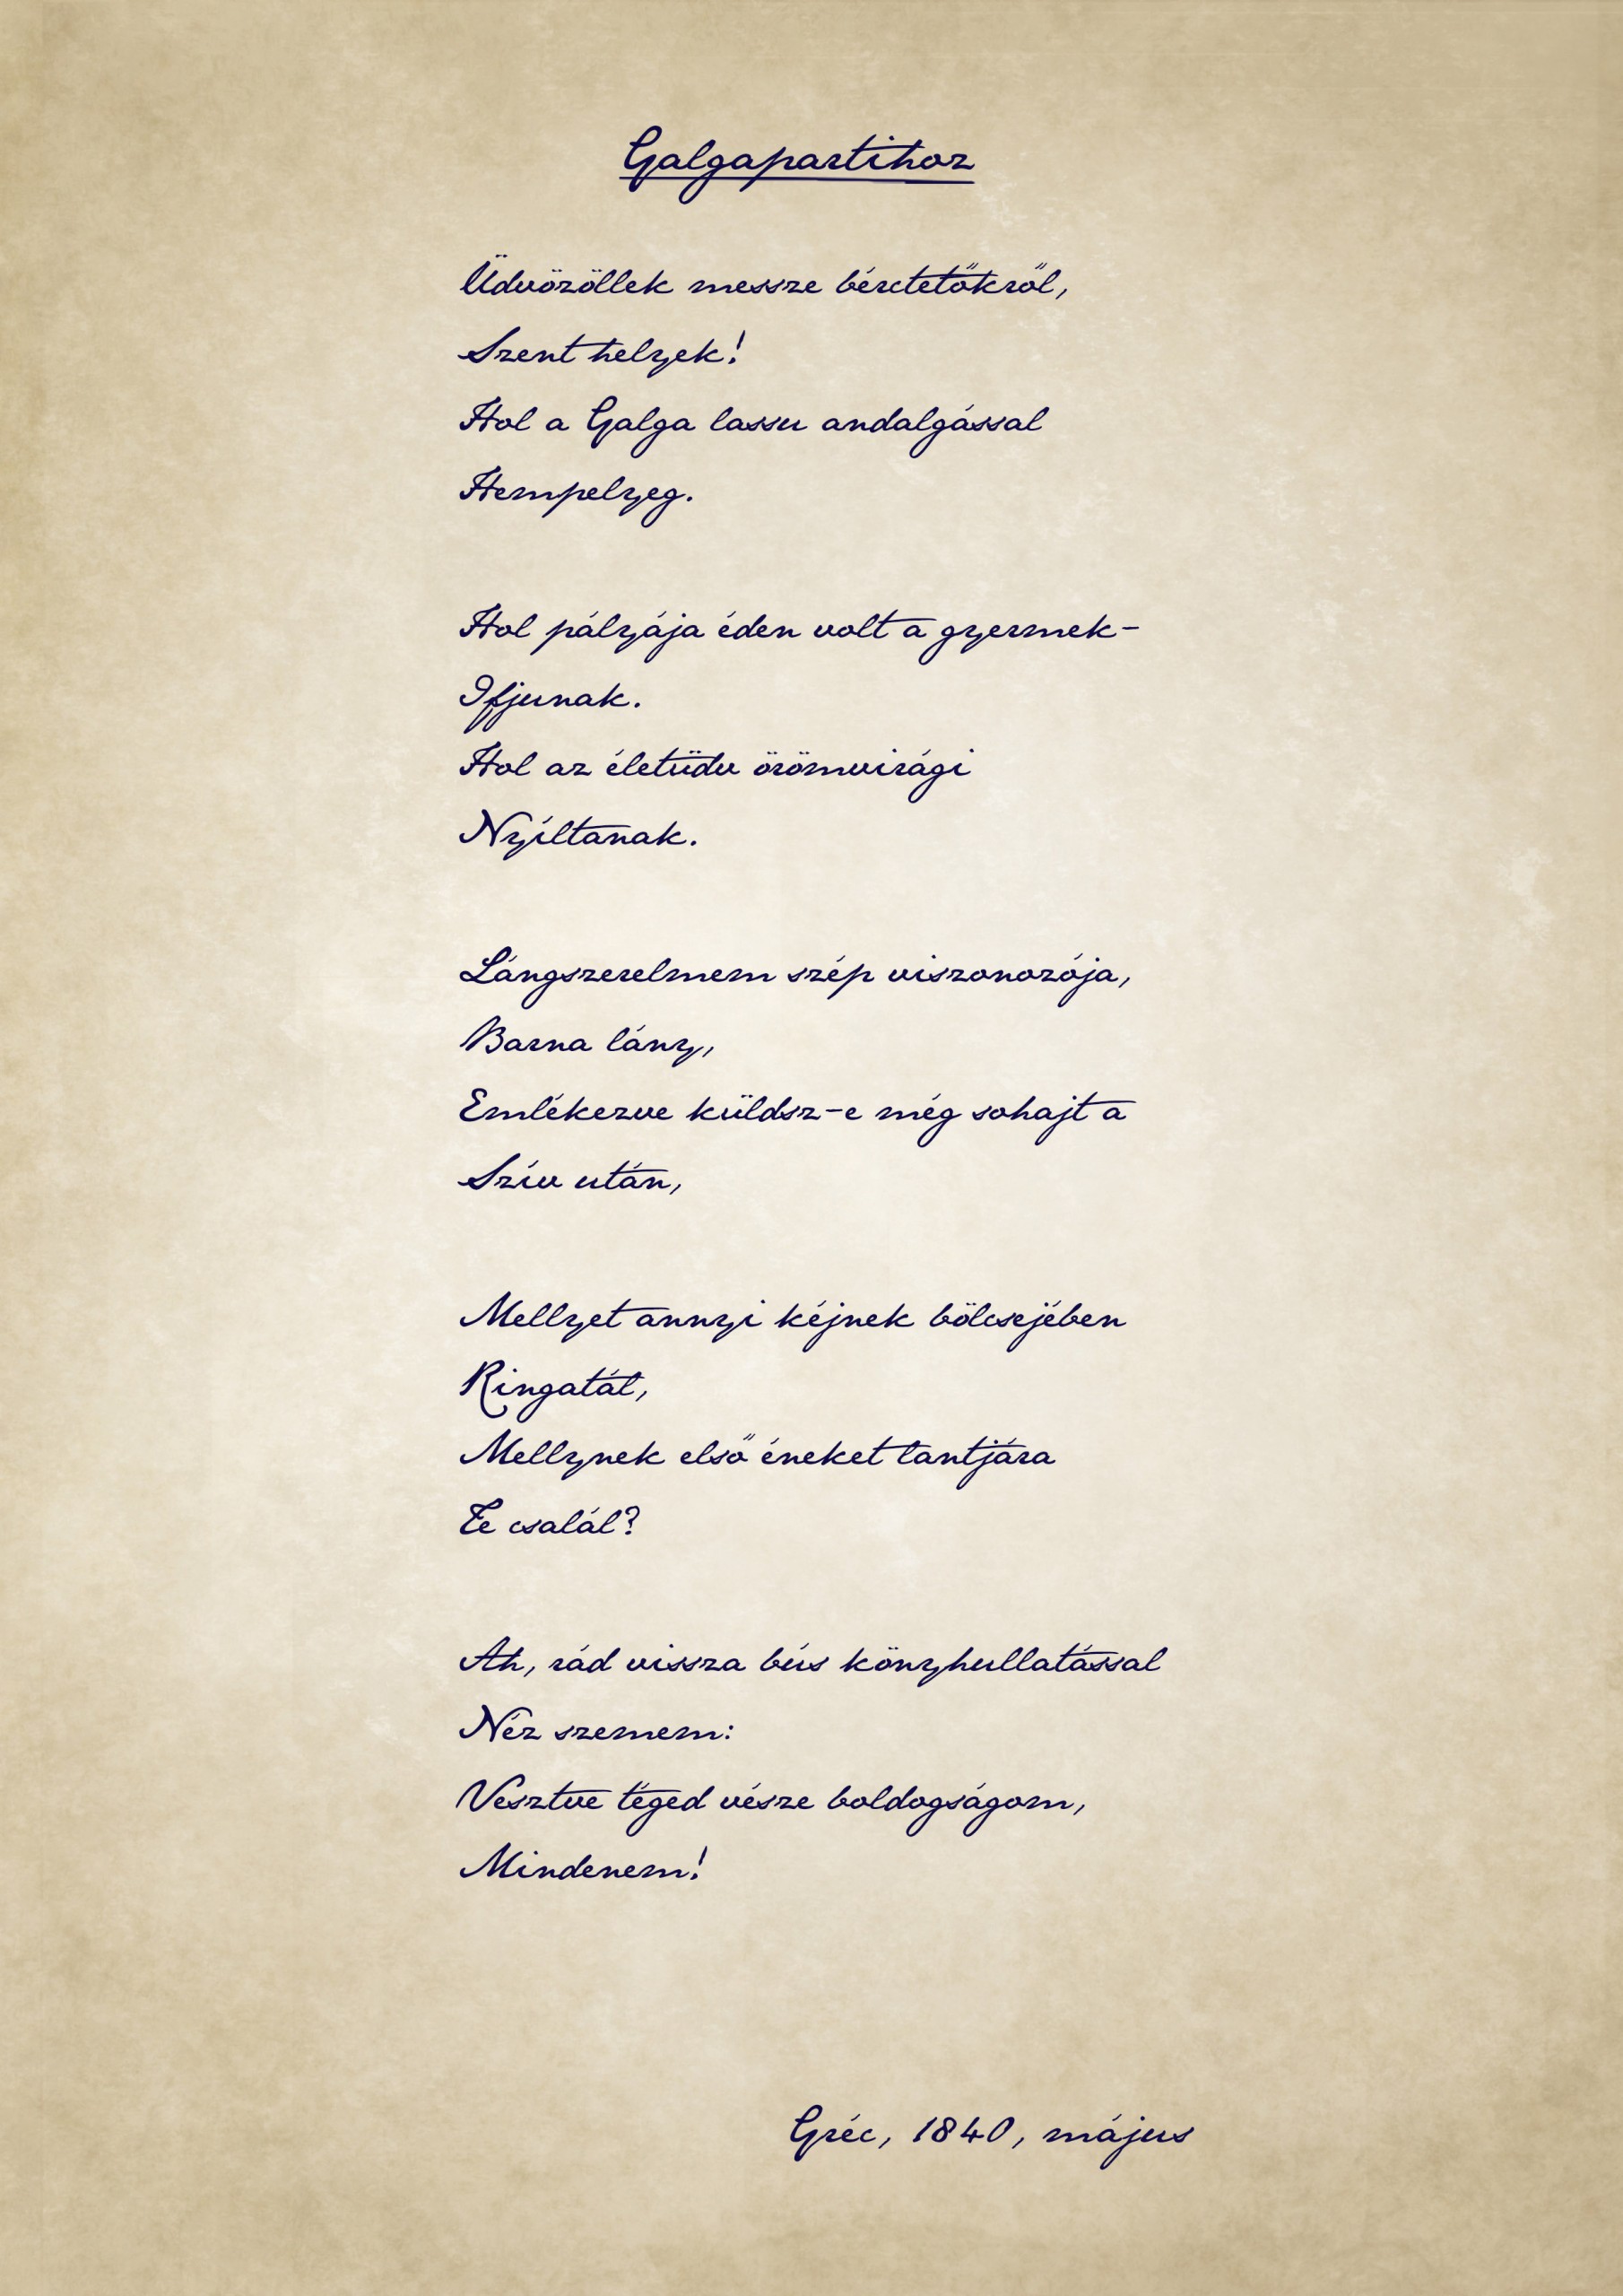 Galgapartihoz
Üdvözöllek messze bérctetőkről,
Szent helyek!
Hol a Galga lassu andalgással
Hempelyeg.
Hol pályája éden volt a gyermek-
Ifjunak.
Hol az életüdv örömvirági
Nyíltanak.
Lángszerelmem szép viszonozója,
Barna lány,
Emlékezve küldsz-e még sohajt a
Szív után,
Mellyet annyi kéjnek bölcsejében
Ringatál,
Mellynek első éneket lantjára
Te csalál?
Ah, rád vissza bús könyhullatással
Néz szemem:
Vesztve téged vésze boldogságom,
Mindenem!
Gréc, 1840, május